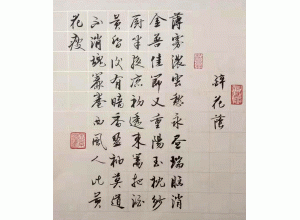 醉花蔭
薄雾濃雲愁永昼瑞腦消
金兽佳節又重陽玉枕紗
厨半夜凉初透東篱把酒
黄昏後有暗香盈袖莫道
不消魂簾卷西風人比黄
花瘦